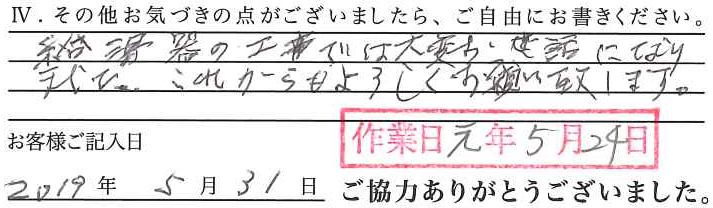 Ⅳ．その他お気づきの点がございましたら、ご自由にお書きください。
給湯器の工事では大変お世話になり
ました。これからもよろしくお願い致します。
お客様ご記入日
作業日元年5月24日
2019年 5月31日 ご協力ありがとうございました。